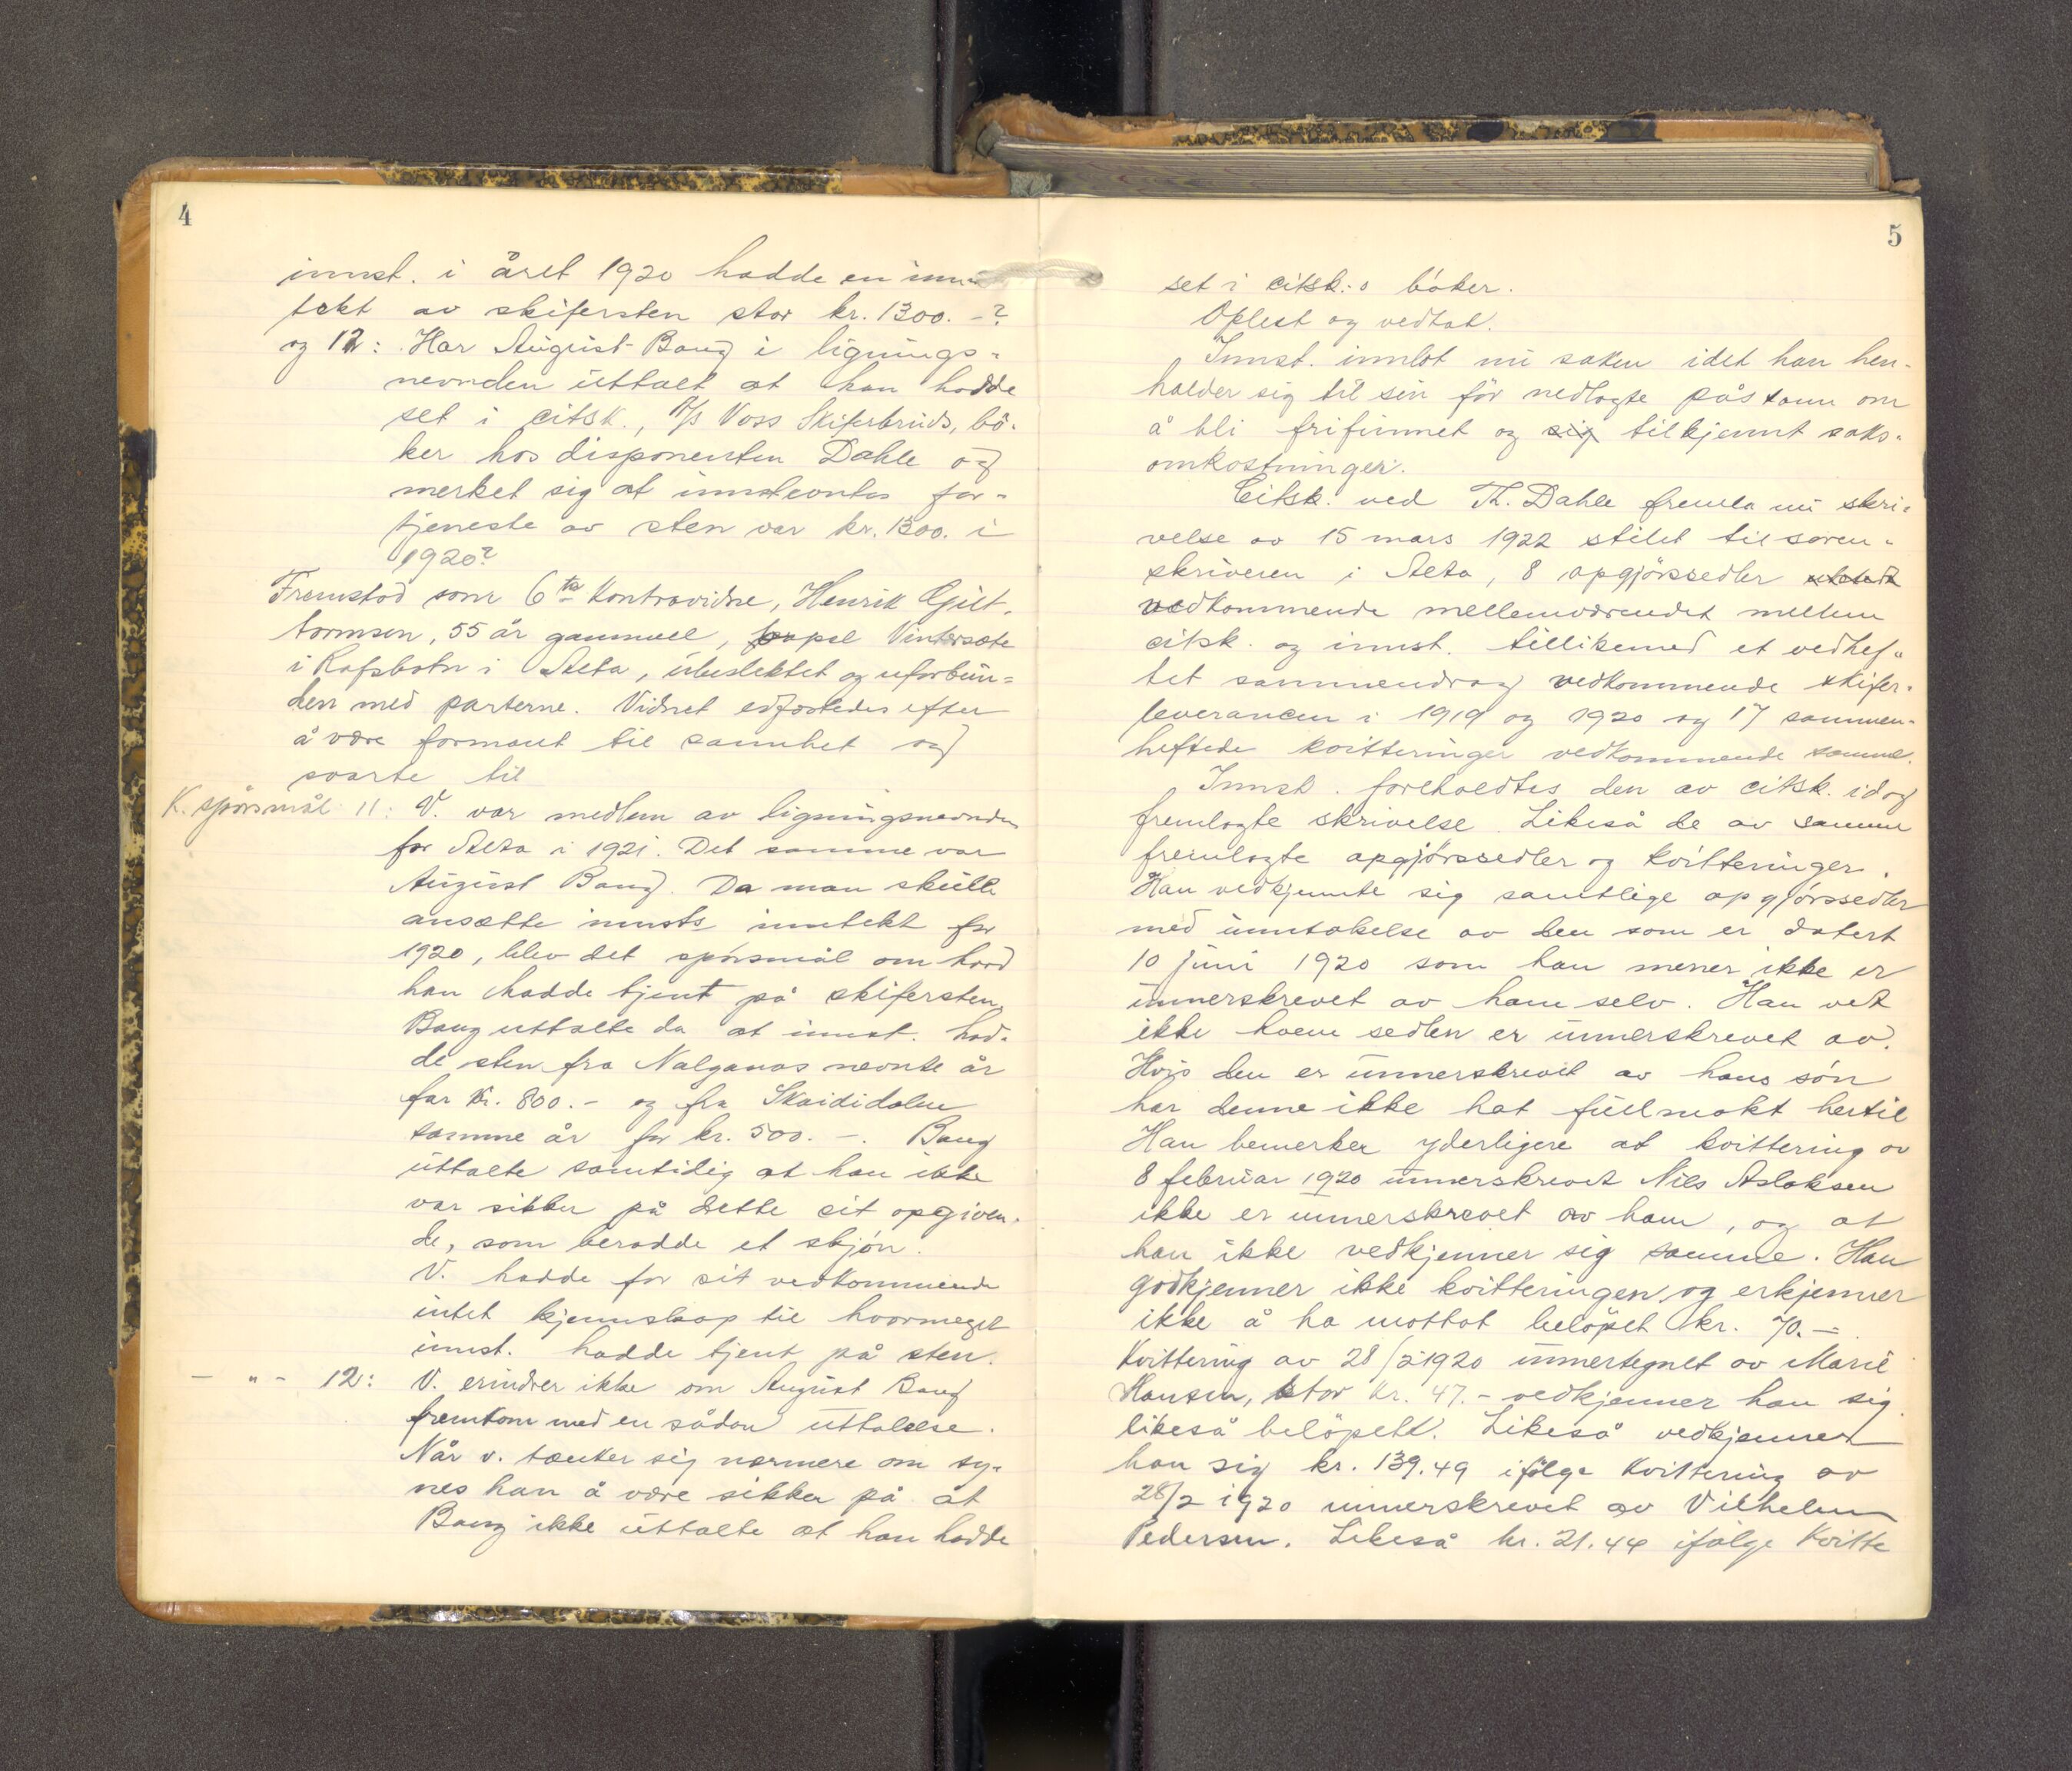 4
innst. i året 1920 hadde en inn-
tekt av skifersten stor kr. 1300.-?
og 12: Har August Bang i lignings-
nevnden uttalt at han hadde
set i citsk., A/S Voss Skiferbruds, bø-
ker hos disponenten Dahle og
merket sig at innstevntes for-
tjeneste av sten var kr. 1300. i
1920?
Fremstod som 6te Kontravidne, Henrik
tormsen, 55 år gammel, Vintersæte
i Rafsbotn i Alta, ubeslektet og uforbun-
den med parterne. Vidnet edfæstedes efter
å være formant til sannhet og
svarte til
K. spørsmål 11: V. var medlem av ligningsnevnden
for Alta i 1921. Det samme var
August Bang. Da man skulle
ansætte innsts inntekt for
1920, blev det spørsmål om hvad
han hadde tjent på skifersten.
Bang uttalte da at innst. had-
de sten fra Nalganas nevnte år
for kr. 800.- og fra Skaididalen
samme år for kr. 500.-. Bang
uttalte samtidig at han ikke
var sikker på dette sit opgiven-
de, som berodde et skjøn.
V. hadde for sit vedkommende
intet kjennskap til hvormeget
innst. hadde tjent på sten.
- " - 12: V. erindrer ikke om August Bang
fremkom med en sådan uttalelse.
Når v. tænker sig nærmere om sy-
nes han å være sikker på at
Bang ikke uttalte at han hadde
5
set i citsk.s bøker.
Oplest og vedtat.
Innst. innlot nu saken idet han hen-
holder sig til sin før nedlagte påstann om
å bli frifunnet og sig tilkjennt saks-
omkostninger.
Citsk. ved Th. Dahle fremla nu skri-
velse av 15 mars 1922 stilet til soren-
skriveren i Alta, 8 opgjørssedler
vedkommende mellemværendet mellem
citsk. og innst. tillikemed et vedhef-
tet sammendrag vedkommende skifer-
leverancen i 1919 og 1920 og 17 sammen-
heftede kvitteringer vedkommende samme.
Innst. foreholdtes den av citsk. idag
fremlagte skrivelse. Likeså de av samme
fremlagte opgjørssedler og kvitteringer.
Han vedkjennte sig samtlige opgjørssedler
med unntakelse av den som er datert
10 juni 1920 som han mener ikke er
unnerskrevet av ham selv. Han vet
ikke hvem sedlen er unnerskrevet av.
Hvis den er unnerskrevet av hans søn
har denne ikke hat fullmakt hertil
Han bemerker yderligere at kvittering av
8 februar 1920 unnerskrevet Nils Aslaksen
ikke er unnerskrevet av ham, og at
han ikke vedkjenner sig samme. Han
godkjenner ikke kvitteringen og erkjenner
ikke å ha mottat beløpet kr. 70.-
Kvittering av 28/2 1920 unnertegnet av Marie
Hansen, stor kr. 47.- vedkjenner han sig
likeså beløpet. Likeså vedkjenner
han sig kr. 139.49 ifølge kvittering av
28/2 1920 unnerskrevet av Vilhelm
Pedersen. Likeså kr. 21.44 ifølge kvitte